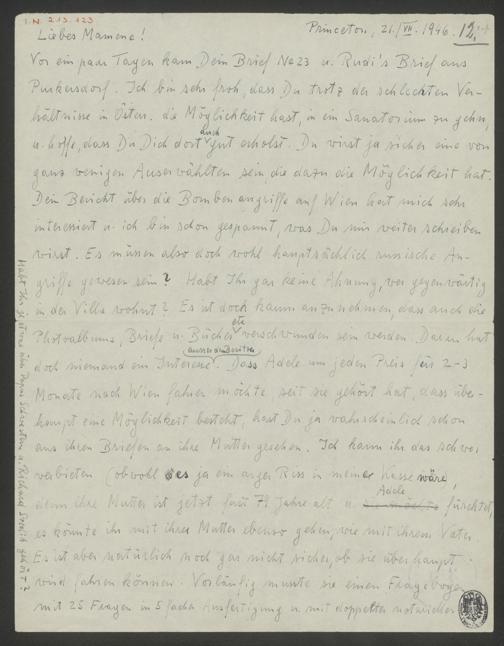 I.N. 213.123
Princeton, 21./VII. 1946. 12.
Liebes Mamene!
Vor ein paar Tagen kam Dein Brief No 23 u. Rudi's Brief aus
Purkersdorf. Ich bin sehr froh, dass Du trotz der schlechten Ver-
hältnisse in Österr. die Möglichkeit hast, in ein Sanatorium zu gehn,
u. hoffe, dass Du Dich dort auch gut erholst. Du wirst ja sicher eine von
ganz wenigen Auserwählten sein die dazu die Möglichkeit hat.
Dein Bericht über die Bombenangriffe auf Wien hat mich sehr
interessiert u. ich bin schon gespannt, was Du mir weiter schreiben
wirst. Es müssen also doch wohl hauptsächlich russische An-
griffe gewesen sein? Habt Ihr gar keine Ahnung, wer gegenwärtig
in der Villa wohnt? Es ist doch kaum anzunehmen, dass auch die
Photoalbums, Briefe u. Bücher etc verschwunden sein werden. Daran hat
doch niemand ein Interesse ausser den Besitzern. Dass Adele um jeden Preis für 2-3
Monate nach Wien fahren möchte, seit sie gehört hat, dass über-
haupt eine Möglichkeit besteht, hast Du ja wahrscheinlich schon
aus ihren Briefen an ihre Mutter gesehen. Ich kann ihr das schwer
verbieten (obwohl es ja ein arger Riss in meiner Kasse wäre,
denn ihre Mutter ist jetzt fast 78 Jahre alt u. Adele fürchtet,
es könnte ihr mit ihrer Mutter ebenso gehen, wie mit ihrem Vater.
Es ist aber natürlich noch gar nicht sicher, ob sie überhaupt
wird fahren können. Vorläufig musste sie einen Fragebogen
mit 25 Fragen in 5 facher Ausfertigung u. mit doppelter notarieller
Habt Ihr je etwas über Papas Schwestern u. Richard gehört?